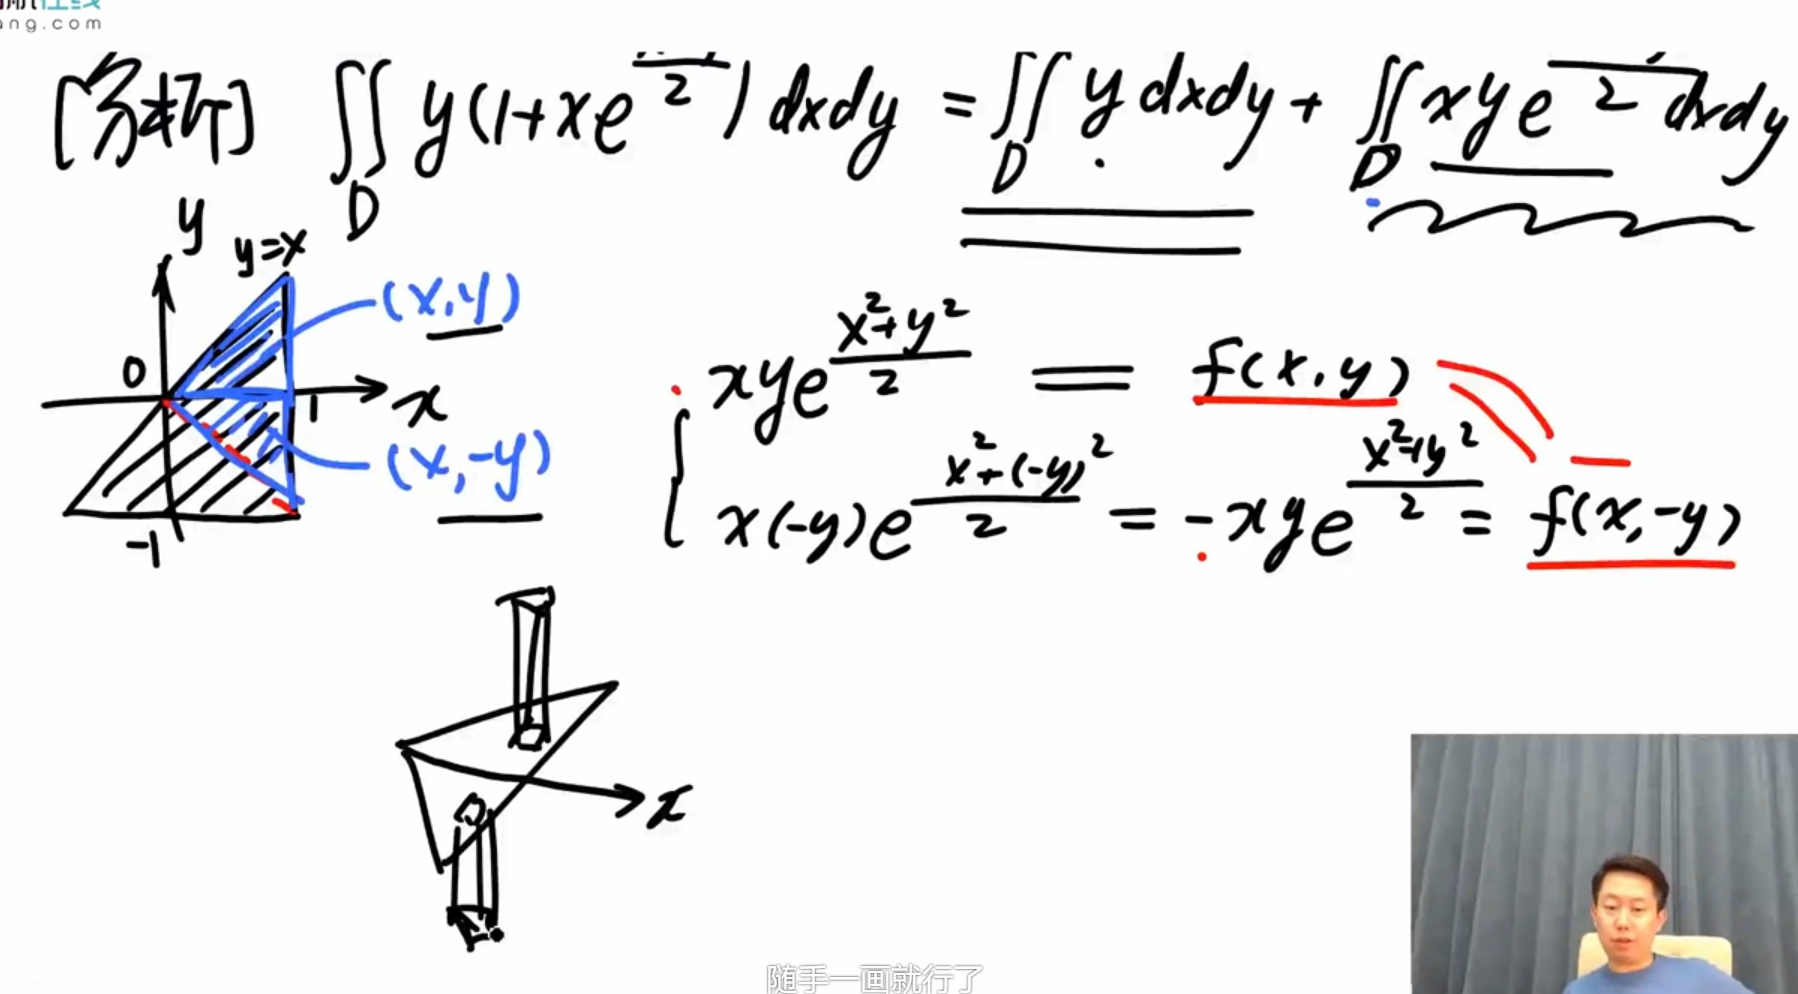 ang.com
[分析] ∬_D y(1+xe^{\frac{}{2}}) dxdy = ∬_D y dxdy + ∬_D xye^{\frac{}{2}} dxdy
y
y=x
(x,y)
0
1
x
(x,-y)
-1
xye^{\frac{x^2+y^2}{2}} = f(x,y)
x(-y)e^{\frac{x^2+(-y)^2}{2}} = -xye^{\frac{x^2+y^2}{2}} = f(x,-y)
x
随手一画就行了